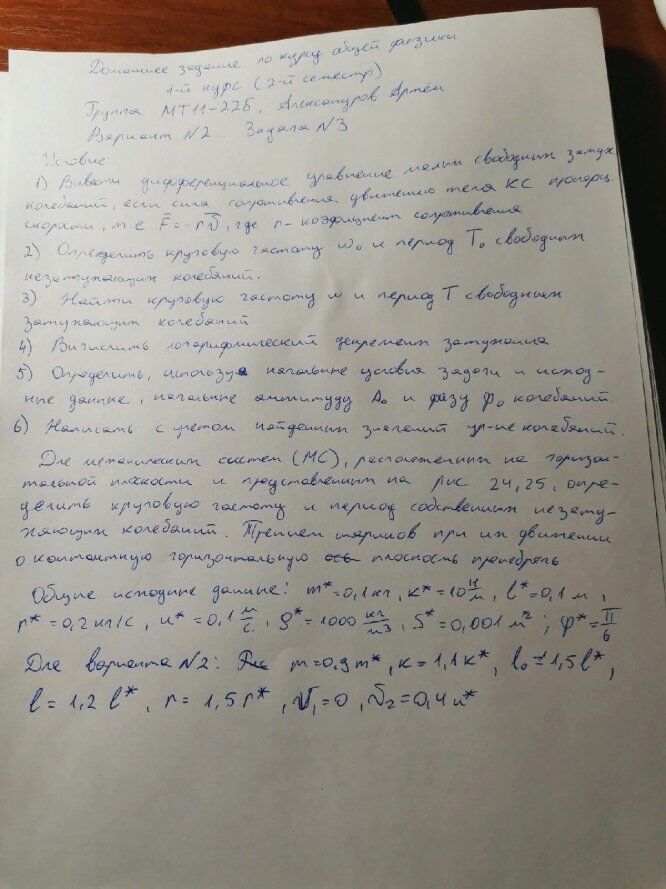 Домашнее задание по курсу общей физики
1-й курс (2-й семестр)
Группа МТ11-22Б, Александров Артём
Вариант N2. Задача N3
Условие:
1) Вывести дифференциальное уравнение малых свободных затух.
колебаний, если сила сопротивления движению тела КС пропорц.
скорости, т.е F̄=-rv̄, где r- коэффициент сопротивления
2) Определить круговую частоту ω₀ и период T₀ свободных
незатухающих колебаний.
3) Найти круговую частоту ω и период T свободных
затухающих колебаний
4) Вычислить логарифмический декремент затухания.
5) Определить, используя начальные условия задачи и исход-
ные данные, начальные амплитуду A₀ и фазу φ₀ колебаний.
6) Написать с учетом найденных значений ур-ие колебаний.
Для механических систем (МС), расположенных на горизон-
тальной плоскости и представленных на рис 24, 25, опре-
делить круговую частоту и период собственных незату-
хающих колебаний. Трением шариков при их движении
о контактную горизонтальную плоскость пренебречь
Общие исходные данные: m*=0,1 кг, к*=10 Н/м, l*=0,1 м,
r*=0,2 кг/с, u*=0,1 м/с, ρ*=1000 кг/м³, S*=0,001 м²; φ*=π/6
Для варианта N2: m=0,9m*, к=1,1к*, l₀=1,5l*,
l=1,2 l*, r=1,5r*, v₁=0, v₂=0,4u*